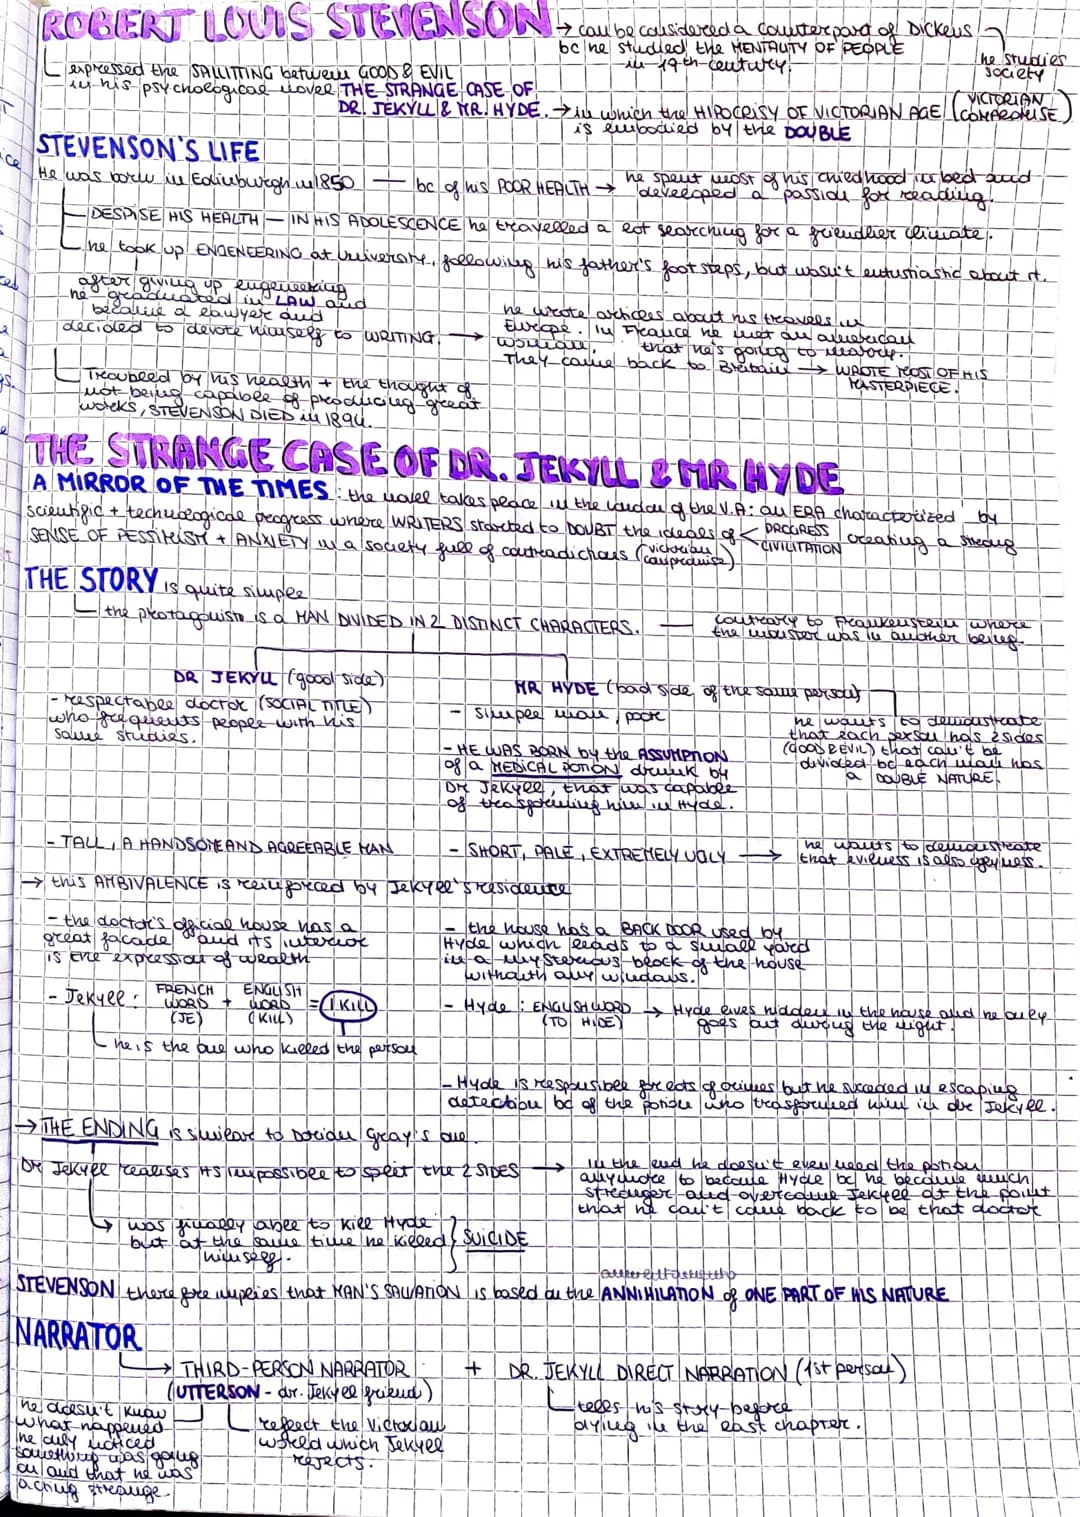 ROBERT LOUIS STEVENSON → can be considered a counterpart of Dickens
bc he studied the MENTALITY OF PEOPLE
in 19th century.
he studies
society
expressed the SPLITTING between GOOD & EVIL
in his psychological novel THE STRANGE CASE OF
DR. JEKYLL & MR. HYDE. → in which the HIPOCRISY OF VICTORIAN AGE (VICTORIAN
COMPROMISE)
is embodied by the DOUBLE
STEVENSON'S LIFE
He was born in Edinburgh in 1850 — bc of his POOR HEALTH → he spent most of his childhood in bed and
developed a passion for reading.
DESPISE HIS HEALTH — IN HIS ADOLESCENCE he travelled a lot searching for a friendlier climate.
he took up ENGENEERING at University, following his father's footsteps, but wasn't entustiastic about it.
after giving up engeneering
he graduated in LAW and
became a lawyer and
decided to devote himself to WRITING. →
he wrote articles about his travels in
Europe. In France he met an american
woman, that he's going to marry.
They came back to Britain → WROTE MOST OF HIS
MASTERPIECE.
Troubled by his health + the thought of
not being capable of producing great
works, STEVENSON DIED in 1894.
THE STRANGE CASE OF DR. JEKYLL & MR HYDE
A MIRROR OF THE TIMES : the novel takes place in the London of the V.A: an ERA characterized by
scientific + technological progress where WRITERS started to DOUBT the ideals of < PROGRESS
CIVILITATION creating a strong
SENSE OF PESSIMISM + ANXIETY in a society full of contradictions (victorian
compromise)
THE STORY is quite simple
the protagonist is a MAN DIVIDED IN 2 DISTINCT CHARACTERS. — contrary to Frankenstein where
the monster was in another being.
DR JEKYLL (good side)
- respectable doctor (SOCIAL TITLE)
who frequents people with his
same studies.
MR HYDE (bad side of the same person)
- simple man, poor
he wants to demostrate
that each person has 2 sides
(GOOD & EVIL) that can't be
divided bc each man has
a DOUBLE NATURE.
- HE WAS BORN by the ASSUMPTION
of a MEDICAL POTION drunk by
Dr Jekyll, that was capable
of trasforming him in Hyde.
- TALL, A HANDSOME AND AGREEABLE MAN
- SHORT, PALE, EXTREMELY UGLY → he wants to demostrate
that evilness is also uglyness.
→ this AMBIVALENCE is reinforced by Jekyll's residence
- the doctor's official house has a
great facade and its interior
is the expression of wealth
- the house has a BACK DOOR used by
Hyde which leads to a small yard
in a mysterious block of the house
without any windows.
- Jekyll : FRENCH WORD (JE) + ENGLISH WORD (KILL) = I KILL
he is the one who killed the person
- Hyde : ENGLISH WORD (TO HIDE) → Hyde lives hidden in the house and he only
goes out during the night.
- Hyde is responsible for acts of crimes but he succeded in escaping
detection bc of the potion who trasformed him in dr Jekyll.
→ THE ENDING is similar to Dorian Gray's one.
Dr Jekyll realises its impossible to split the 2 SIDES → in the end he doesn't even need the potion
anymore to become Hyde bc he became much
stronger and overcome Jekyll at the point
that he can't come back to be that doctor
was finally able to kill Hyde
but at the same time he killed
himself. } SUICIDE
STEVENSON therefore implies that MAN'S SALVATION is based on the ANNIHILATION of ONE PART OF HIS NATURE
NARRATOR
→ THIRD-PERSON NARRATOR + DR. JEKYLL DIRECT NARRATION (1st person)
(UTTERSON - dr. Jekyll friend)
he doesn't know
what happened
he only noticed
something was going
on and that he was
acting strange.
reflect the Victorian
world which Jekyll
rejects.
tells his story before
dying in the last chapter.